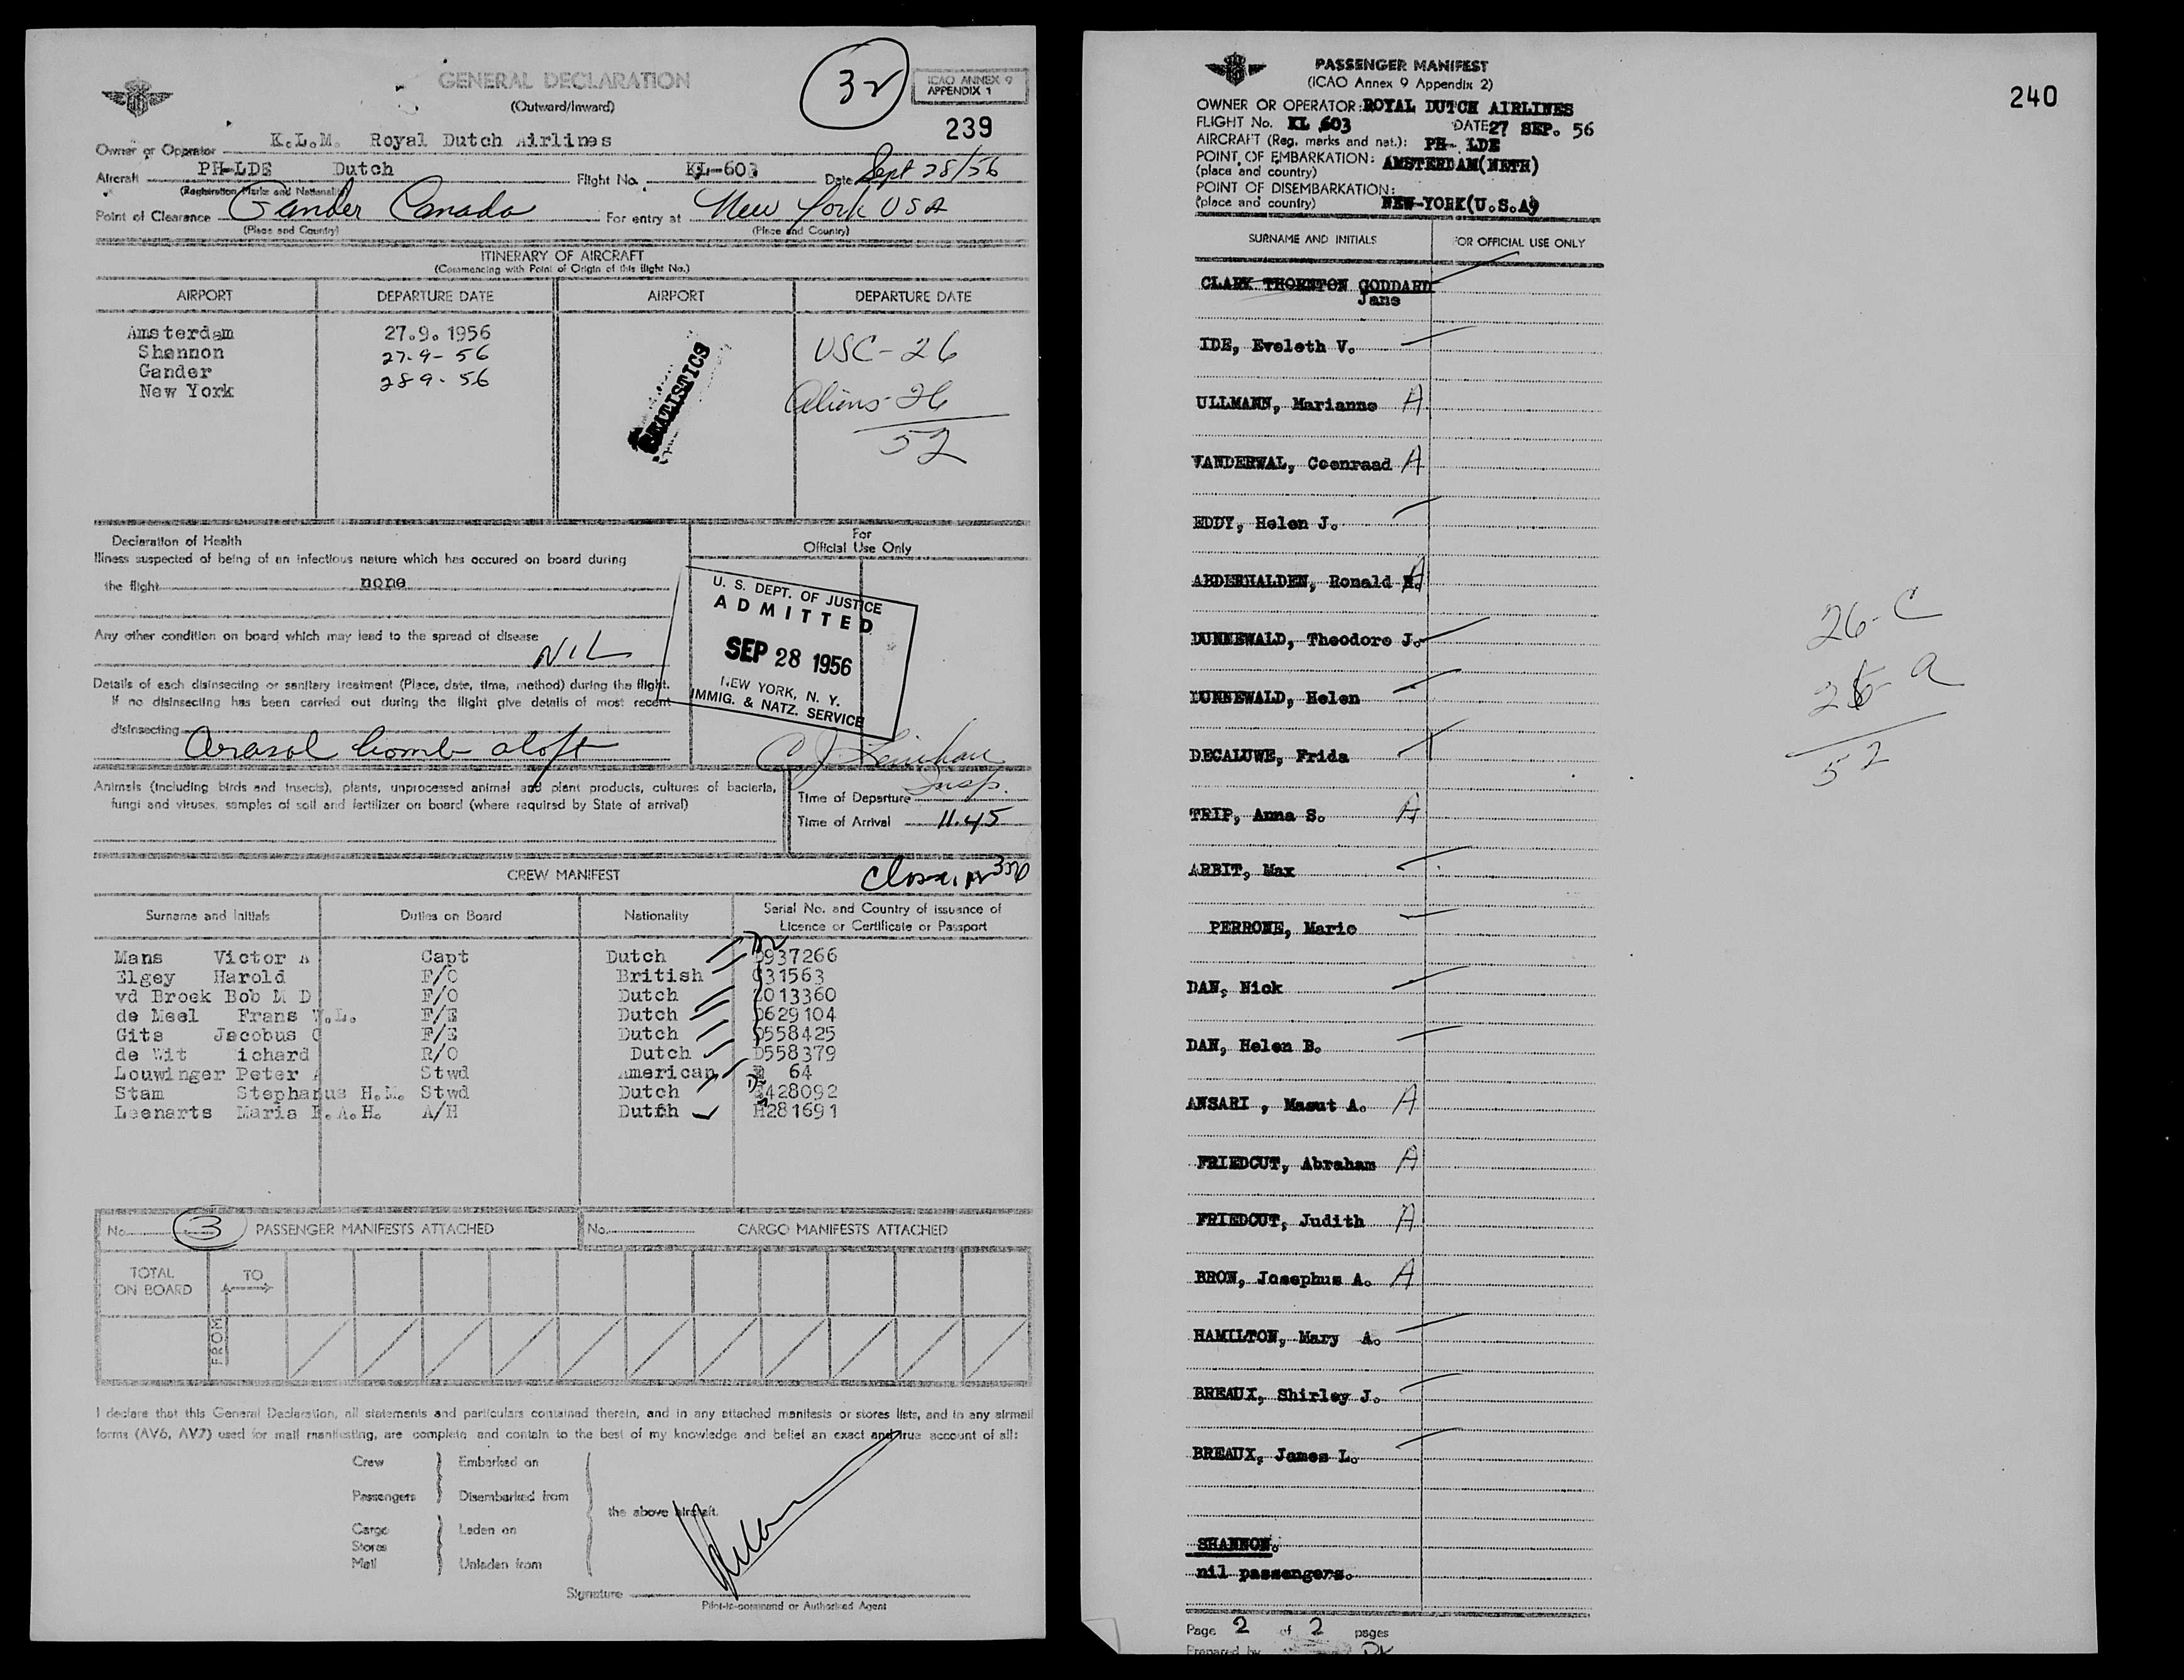 GENERAL DECLARATION
(Outward/Inward)
32
ICAO ANNEX 9
APPENDIX 1
239
Owner or Operator K.L.M. Royal Dutch Airlines
Aircraft PH-LDE Dutch Flight No. KL-603 Date Sept 28/56
(Registration Marks and Nationality)
Point of Clearance Gander Canada For entry at New York USA
(Place and Country) (Place and Country)
ITINERARY OF AIRCRAFT
(Commencing with Point of Origin of this flight No.)
AIRPORT DEPARTURE DATE AIRPORT DEPARTURE DATE
Amsterdam 27.9.1956
Shannon 27-9-56
Gander 28 9-56
New York
STATISTICS
USC-26
Aliens-26
52
Declaration of Health
Illness suspected of being of an infectious nature which has occured on board during
the flight none
Any other condition on board which may lead to the spread of disease
NIL
Details of each disinsecting or sanitary treatment (Place, date, time, method) during the flight.
If no disinsecting has been carried out during the flight give details of most recent
disinsecting
Arasol bomb aloft
For
Official Use Only
U. S. DEPT. OF JUSTICE
ADMITTED
SEP 28 1956
NEW YORK, N. Y.
IMMIG. & NATZ. SERVICE
Insp.
Animals (including birds and insects), plants, unprocessed animal and plant products, cultures of bacteria,
fungi and viruses, samples of soil and fertilizer on board (where required by State of arrival)
Time of Departure
Time of Arrival 11.45
CREW MANIFEST
Surname and Initials Duties on Board Nationality Serial No. and Country of issuance of
Licence or Certificate or Passport
Mans Victor A Capt Dutch D937266
Elgey Harold F/O British C31563
vd Broek Bob M D F/O Dutch Z013360
de Meel Frans W.L. F/E Dutch D629104
Gits Jacobus C F/E Dutch D558425
de Wit ichard R/O Dutch D558379
Louwinger Peter A Stwd American 64
Stam Stephanus H.M. Stwd Dutch 428092
Leenarts Maria E.A.H. A/H Dutch H281691
No. 3 PASSENGER MANIFESTS ATTACHED No. CARGO MANIFESTS ATTACHED
TOTAL
ON BOARD
TO
FROM
I declare that this General Declaration, all statements and particulars contained therein, and in any attached manifests or stores lists, and in any airmail
forms (AV6, AV7) used for mail manifesting, are complete and contain to the best of my knowledge and belief an exact and true account of all:
Crew Embarked on
Passengers Disembarked from
the above aircraft.
Cargo Laden on
Stores
Mail Unladen from
Signature
Pilot-in-command or Authorised Agent
PASSENGER MANIFEST
(ICAO Annex 9 Appendix 2)
240
OWNER OR OPERATOR: ROYAL DUTCH AIRLINES
FLIGHT No. KL 603 DATE 27 SEP. 56
AIRCRAFT (Reg. marks and nat.): PH- LDE
POINT OF EMBARKATION: AMSTERDAM(NETH)
(place and country)
POINT OF DISEMBARKATION:
(place and country) NEW-YORK(U.S.A)
SURNAME AND INITIALS FOR OFFICIAL USE ONLY
CLARK THORNTON GODDARD
Jane
IDE, Eveleth V.
ULLMANN, Marianne A
VANDERWAL, Coenraad A
EDDY, Helen J.
ABDERHALDEN, Ronald A
DUNNEWALD, Theodore J.
DUNNEWALD, Helen
DECALUWE, Frida
TRIP, Anna S. A
ARBIT, Max
PERRONE, Marie
DAN, Nick
DAN, Helen B.
ANSARI , Masut A. A
FRIEDCUT, Abraham A
FRIEDCUT, Judith A
BRON, Josephus A. A
HAMILTON, Mary A.
BREAUX, Shirley J.
BREAUX, James L.
26-C
26-a
52
SHANNON.
nil passengers.
Page 2 of 2 pages
Prepared by